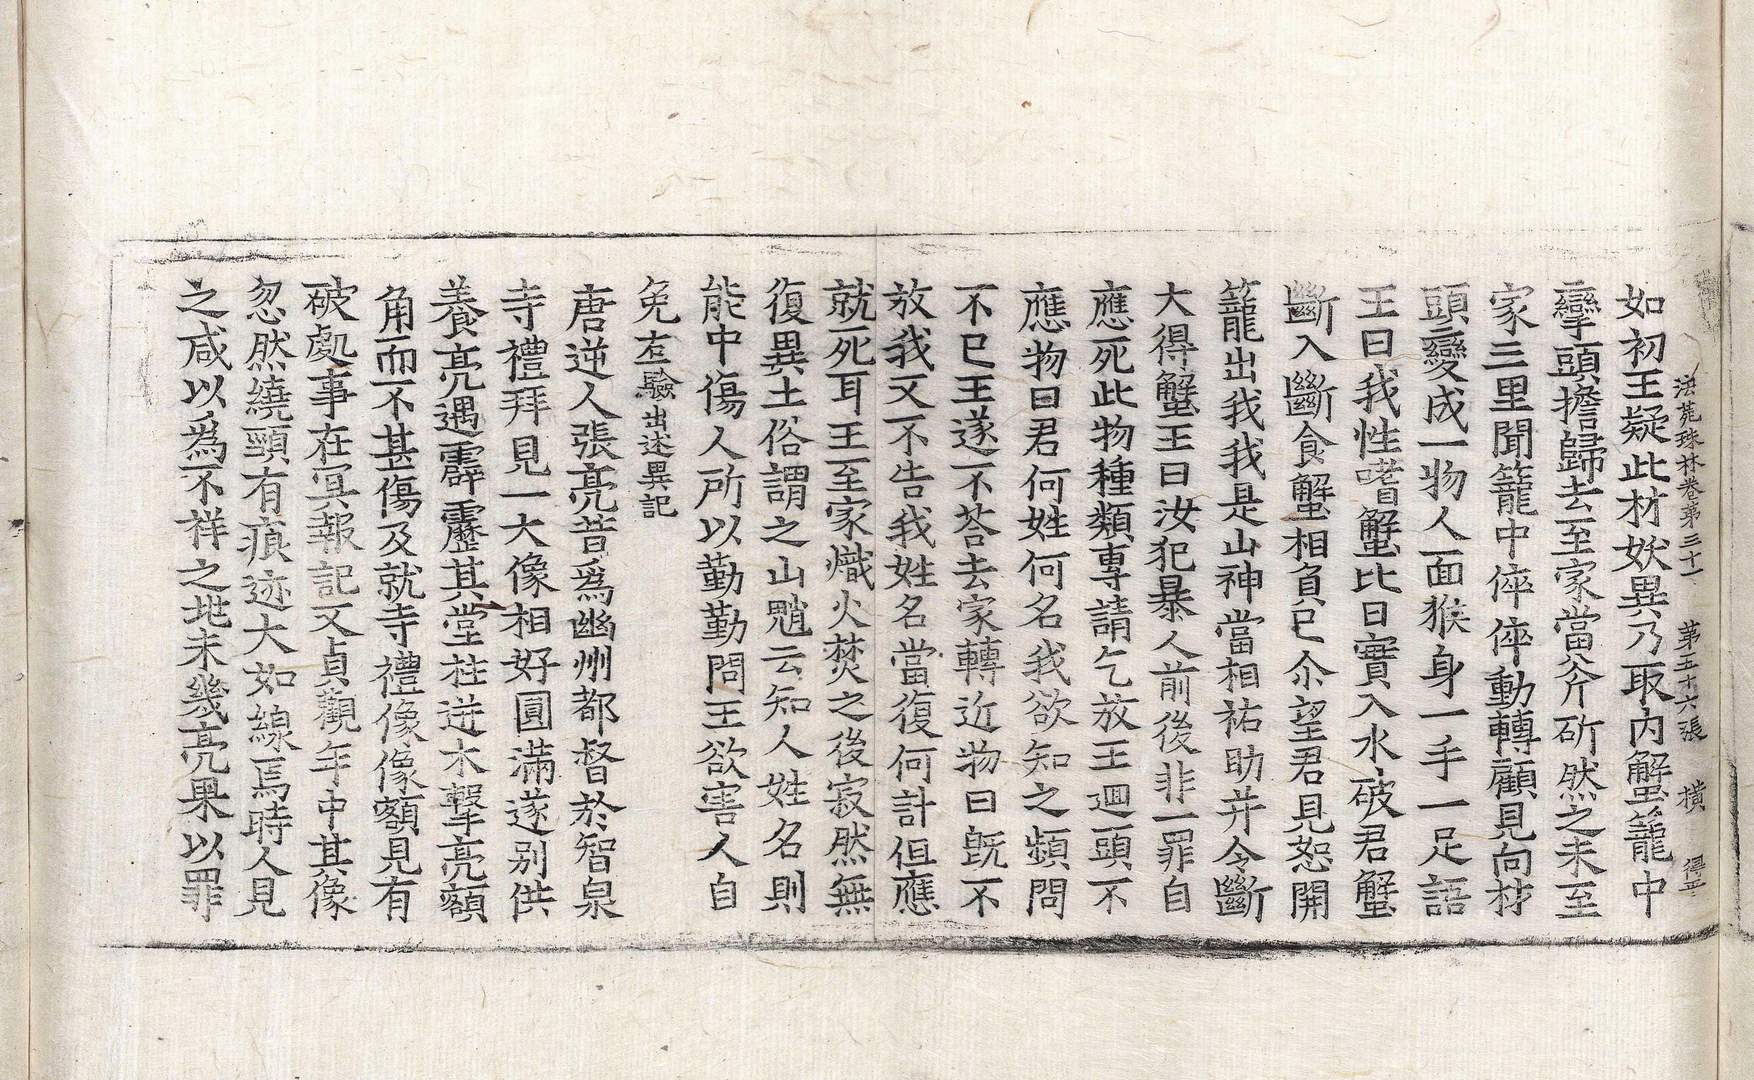 法苑珠林卷第三十一 第五十六張 横 得平
如初王疑此材妖異乃取内蟹籠中
攣頭擔歸去至家當斧斫然之未至
家三里聞籠中倅倅動轉顧見向材
頭變成一物人面猴身一手一足語
王曰我性嗜蟹比日實入水破君蟹
斷入斷食蟹相負已尒望君見恕開
籠出我我是山神當相祐助并令斷
大得蟹王曰汝犯暴人前後非一罪自
應死此物種類專請乞放王迴頭不
應物曰君何姓何名我欲知之頻問
不已王遂不荅去家轉近物曰既不
放我又不告我姓名當復何計但應
就死耳王至家熾火焚之後寂然無
復異土俗謂之山魈云知人姓名則
能中傷人所以勤勤問王欲害人自
免右一驗出述異記
唐逆人張亮昔爲幽州都督於智泉
寺禮拜見一大像相好圓滿遂别供
養亮遇霹靂其堂柱迸木擊亮額
角而不甚傷及就寺禮像像額見有
破處事在冥報記又貞觀年中其像
忽然繞頸有痕迹大如線焉時人見
之咸以爲不祥之地未幾亮果以罪